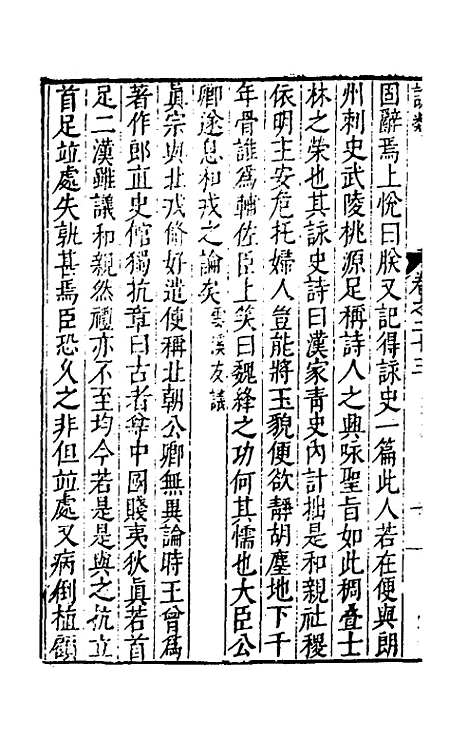 卷之二十三
固辭焉上悅曰朕又記得詠史一篇此人若在便與朗
州刺史武陵桃源足稱詩人之興詠聖旨如此稠疊士
林之榮也其詠史詩曰漢家青史內計拙是和親社稷
依明主安危托婦人豈能將玉貌便欲靜胡塵地下千
年骨誰爲輔佐臣上笑曰魏絳之功何其懦也大臣公
卿遂息和戎之論矣雲溪友議
眞宗與北戎脩好遣使稱北朝公卿無異論時王曾爲
著作郎直史館獨抗章曰古者尊中國賤夷狄眞若首
足二漢雖議和親然禮亦不至均今若是是與之抗立
首足並處失孰甚焉臣恐久之非但並處又病倒植願